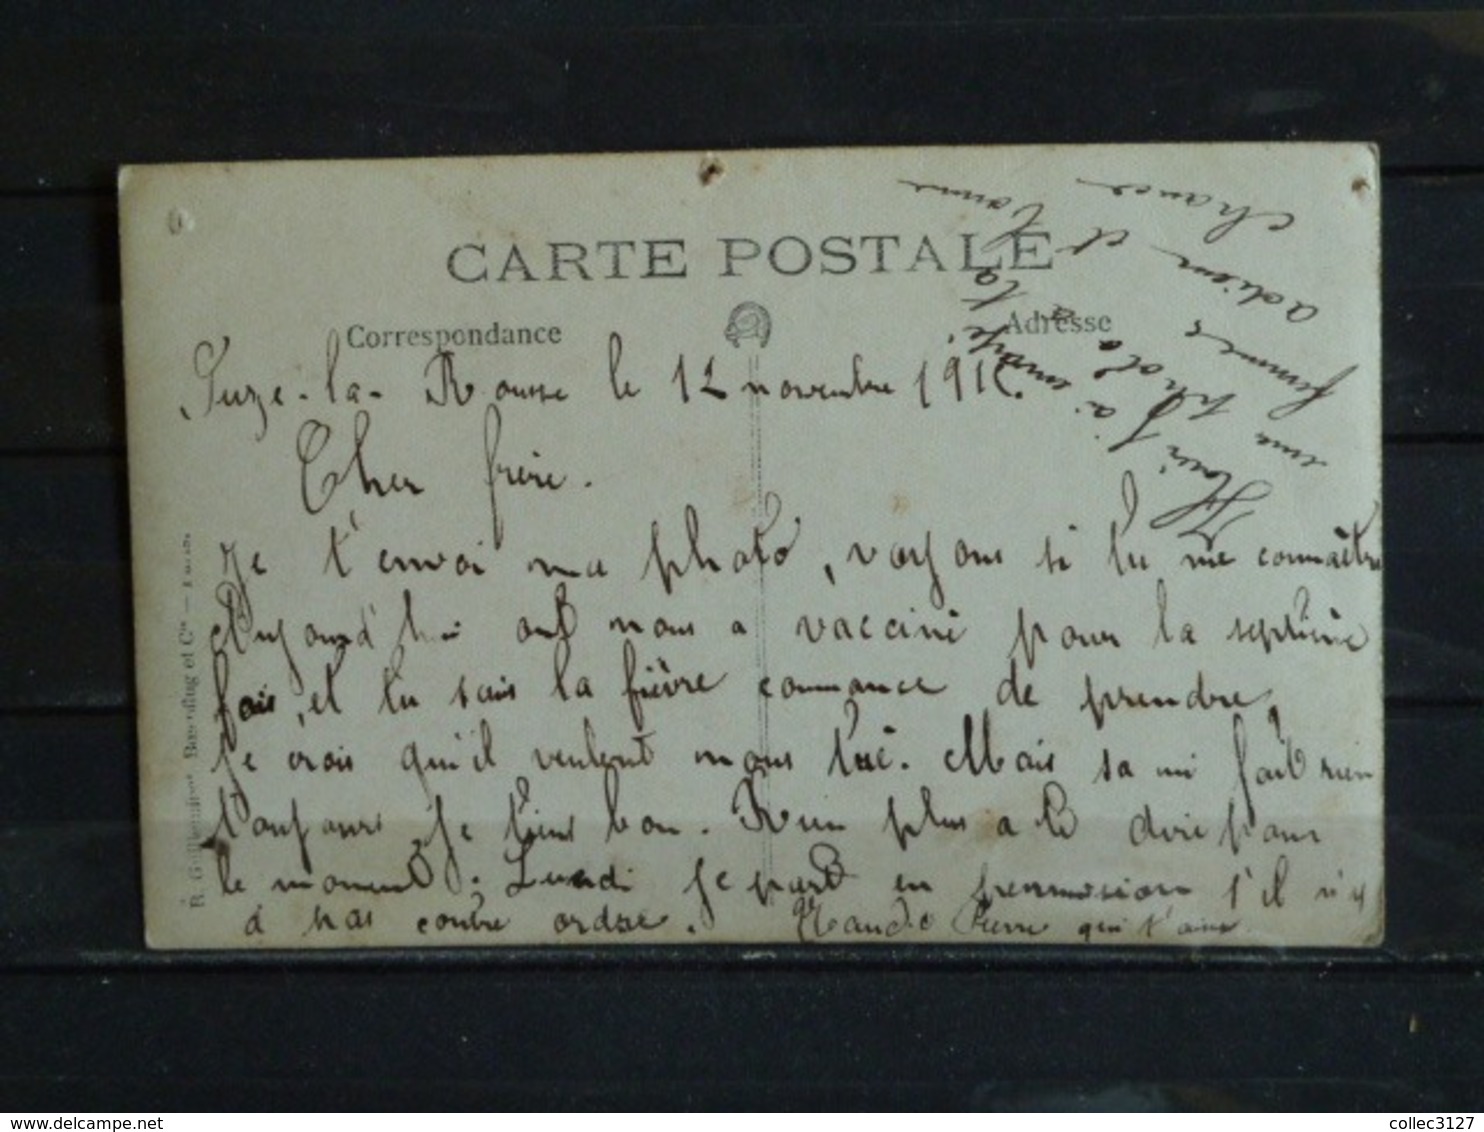 CARTE POSTALE
Correspondance
Adresse
Suze-la-Rousse le 12 novembre 191
Cher frère.
Je t'envoi ma photo, voyons si tu me connaître
Aujourd'hui ont nous a vacciné pour la septième
fois, et tu sais la fièvre commance de prendre,
Je crois qu'il veulent nous tué. Mais sa mi fait rien
toujours je tiens bon. Rien plus a te dire pour
le moment. Lundi je part en permission s'il n'y
à pas contre ordre. Claudio Pierre qui t'aime
Hier j'ai envoyé
une photo a ta
femme
adieu et bonne
chance
R. Guilleminot Bœspflug et Cie — Paris
collec3127